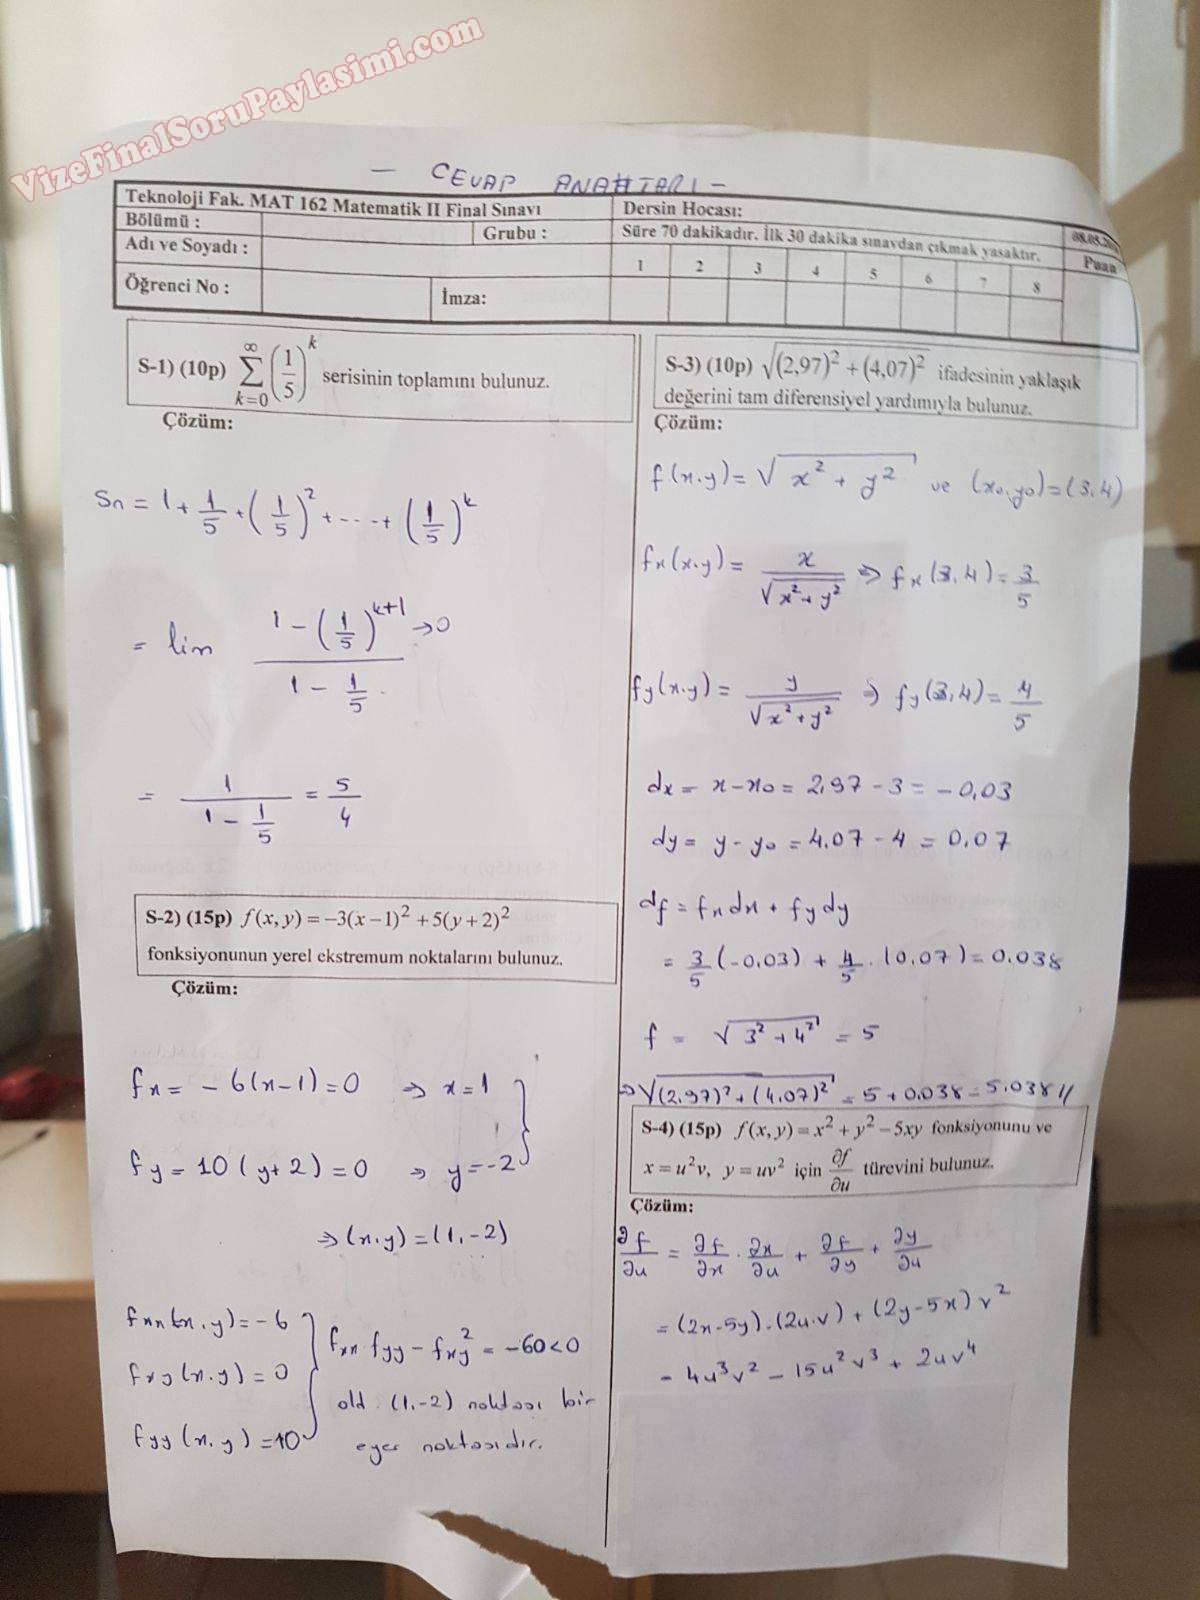 VizeFinalSoruPaylasimi.com
- CEVAP ANAHTARI -
Teknoloji Fak. MAT 162 Matematik II Final Sınavı
Dersin Hocası:
Bölümü :
Grubu :
Süre 70 dakikadır. İlk 30 dakika sınavdan çıkmak yasaktır.
Adı ve Soyadı :
1 2 3 4 5 6 7 8
Puan
Öğrenci No :
İmza:
S-1) (10p) ∑_{k=0}^{∞} (1/5)^k serisinin toplamını bulunuz.
Çözüm:
Sn = 1 + 1/5 + (1/5)² + ... + (1/5)^k
= lim (1 - (1/5)^{k+1} → 0) / (1 - 1/5)
= 1/(1 - 1/5) = 5/4
S-2) (15p) f(x,y) = -3(x-1)² + 5(y+2)²
fonksiyonunun yerel ekstremum noktalarını bulunuz.
Çözüm:
fx = -6(x-1) = 0 ⇒ x=1
fy = 10(y+2) = 0 ⇒ y=-2
⇒ (x,y) = (1,-2)
fxx(x,y) = -6
fxy(x,y) = 0
fyy(x,y) = 10
fxx fyy - fxy² = -60 < 0
old. (1,-2) noktası bir
eyer noktasıdır.
S-3) (10p) √((2,97)² + (4,07)²) ifadesinin yaklaşık
değerini tam diferensiyel yardımıyla bulunuz.
Çözüm:
f(x,y) = √(x² + y²) ve (x₀,y₀) = (3,4)
fx(x,y) = x/√(x²+y²) ⇒ fx(3,4) = 3/5
fy(x,y) = y/√(x²+y²) ⇒ fy(3,4) = 4/5
dx = x-x₀ = 2,97 - 3 = -0,03
dy = y-y₀ = 4,07 - 4 = 0,07
df = fx dx + fy dy
= 3/5 (-0,03) + 4/5 . (0,07) = 0,038
f = √(3² + 4²) = 5
⇒ √((2,97)² + (4,07)²) = 5 + 0,038 = 5,038 //
S-4) (15p) f(x,y) = x² + y² - 5xy fonksiyonunu ve
x = u²v, y = uv² için ∂f/∂u türevini bulunuz.
Çözüm:
∂f/∂u = ∂f/∂x . ∂x/∂u + ∂f/∂y + ∂y/∂u
= (2x-5y).(2u.v) + (2y-5x) v²
= 4u³v² - 15u²v³ + 2uv⁴